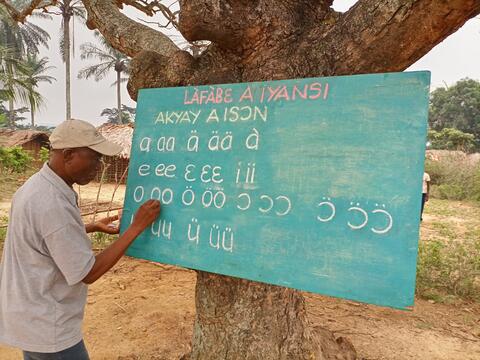 LÀFÁBE A'IYANSI
AKYAY A ISƆN
a aa ä ää à
e ee ɛ ɛɛ i ii
o oo ö öö ɔ ɔɔ ɔ̈ ɔ̈ɔ̈
uu ü üü